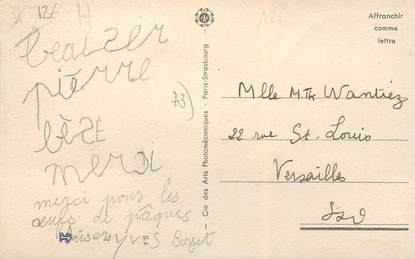 126 H
beaizer
pierre
bèze
merci
73)
merci pour les
œufs de pâques
baisers YVES
Cie des Arts Photomécaniques - Paris-Strasbourg -
Affranchir
comme
lettre
Mlle M.Th Wantiez
22 rue St. Louis
Versailles